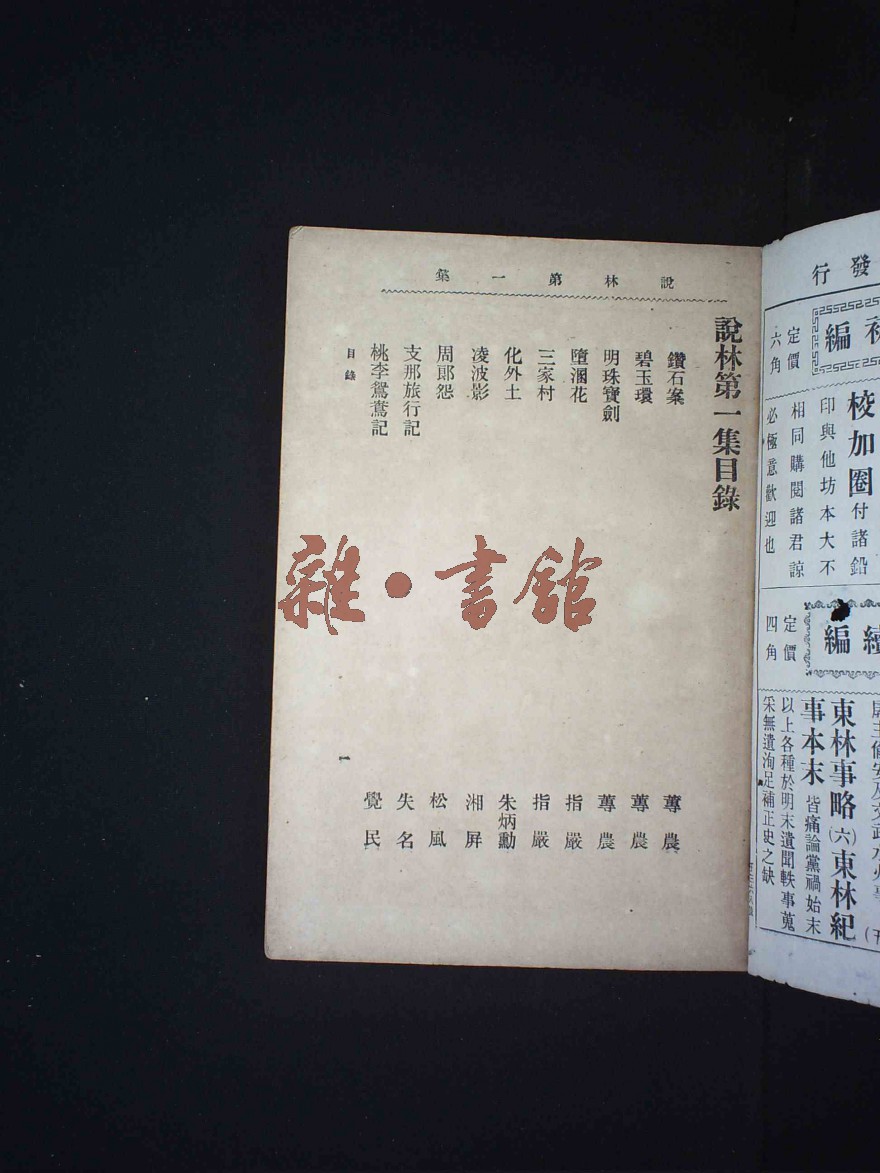 說林第一集
說林第一集目錄
鑽石案 蓴農
碧玉環 蓴農
明珠寶劍 蓴農
墮溷花 指嚴
三家村 指嚴
化外土 朱炳勳
凌波影 湘屏
周郎怨 松風
支那旅行記 失名
桃李鴛鴦記 覺民
目錄
一
雜·書館
發行
編
定價六角
校加圈付諸鉛
印與他坊本大不
相同購閱諸君諒
必極意歡迎也
續編
定價四角
東林事略(六)東林紀
事本末 皆痛論黨禍始末
以上各種於明末遺聞軼事蒐
采無遺洵足補正史之缺